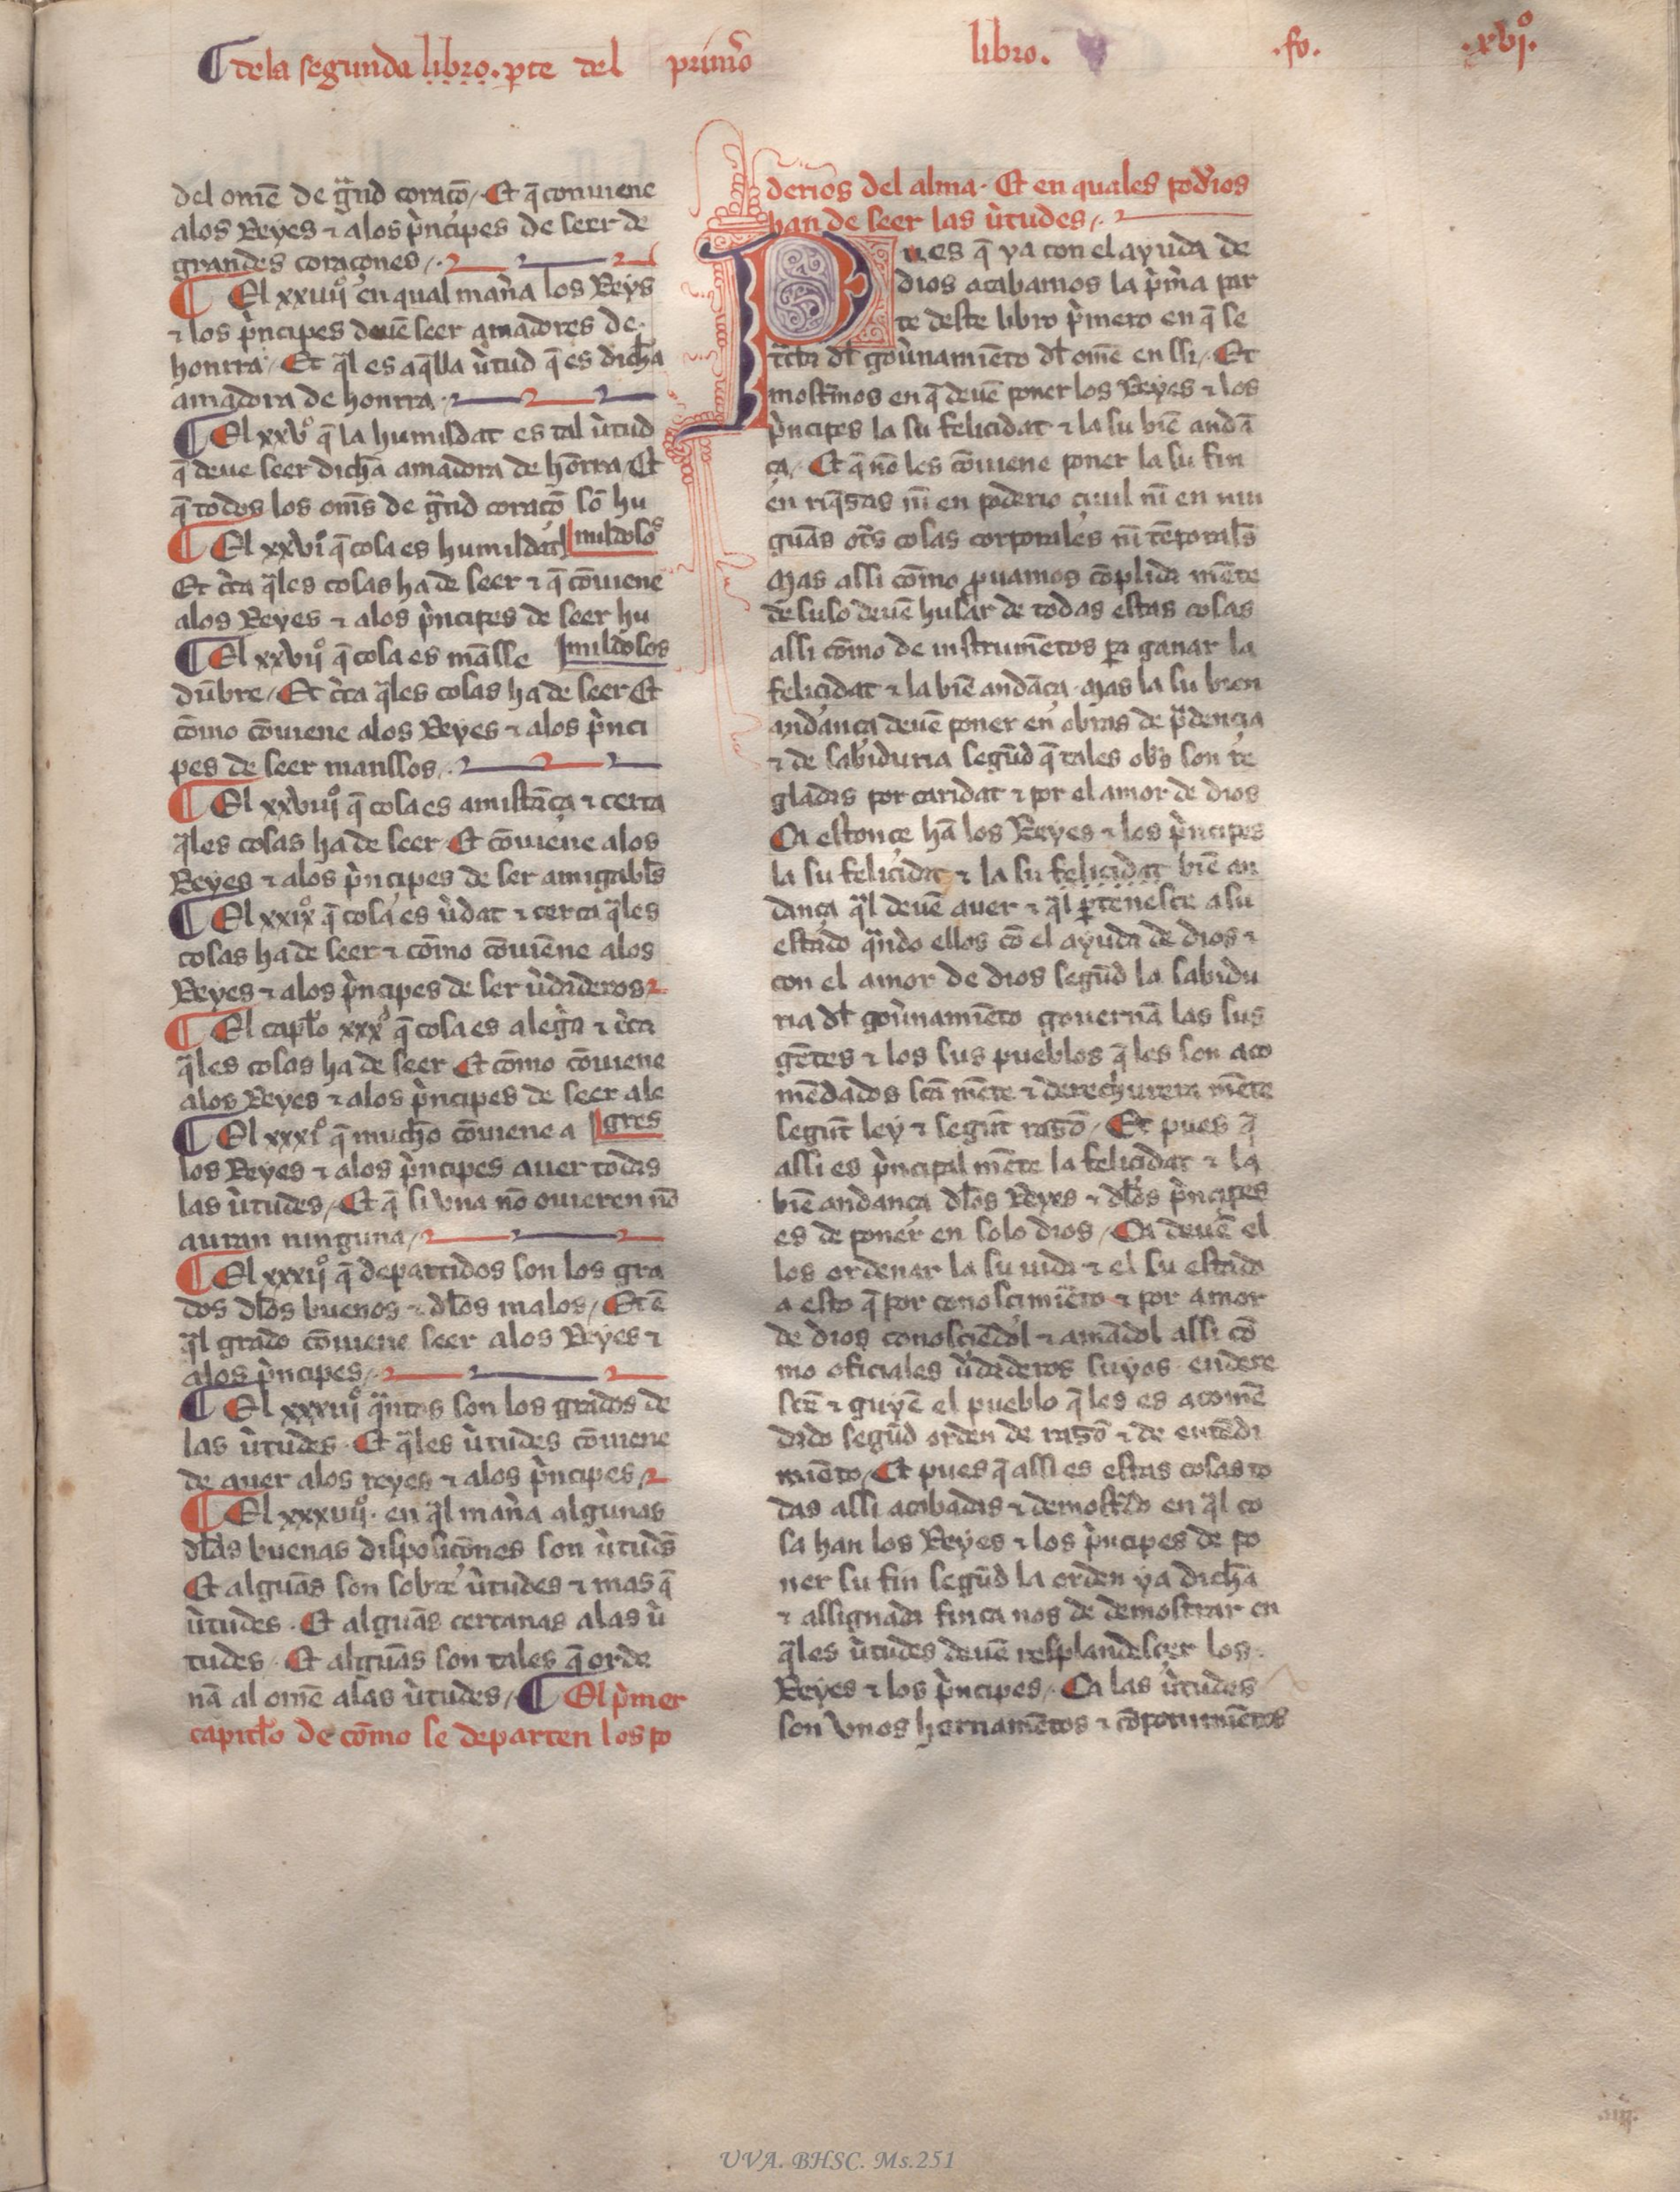 ¶ dela segunda libro. ꝑte del primo᷑ libro. .fo. .xvjº.
del omē de gᷓnd coraçō / Et q̄ conuiene
alos Reyes ⁊ alos pͥncipes de seer de
grandes coraçones /.
¶ El xxiiijº en qual man̄a los Reys
⁊ los pͥncipes deuē seer amadores de
honrra / Et q̄l es aq̄lla ùtud q̄ es dich̄a
amadora de honrra.
¶ El xxvº q̄ la humildat es tal ùtud
q̄ deue seer dich̄a amadora de hōrra / Et
q̄ todos los om̄s de gᷓnd coraçō sō hu
mildosos
¶ El xxviº q̄ cosa es humildat
Et c̀ca q̄les cosas ha de seer ⁊ q̄ cōuiene
alos Reyes ⁊ alos pͥncipes de seer hu
mildosos
¶ El xxvijº q̄ cosa es māsse
dūbre / Et c̀ca q̄les cosas ha de seer Et
cōmo cōuiene alos Reyes ⁊ alos pͥnci
pes de seer manssos /.
¶ El xxviijº q̄ cosa es amistāça ⁊ cerca
q̄les cosas ha de seer. Et cōuiene alos
Reyes ⁊ alos pͥncipes de ser amigabl̄s
¶ El xxixº q̄ cosa es ùdat ⁊ cerca q̄les
cosas ha de seer ⁊ cōmo cōuiēne alos
Reyes ⁊ alos pͥncipes de ser ùdaderos
¶ El capłᷣo xxxº q̄ cosa es alegͥa ⁊ c̀ca
q̄les cosas ha de seer Et cōmo cōuiene
alos Reyes ⁊ alos pͥncipes de seer ale
gres
¶ El xxxiº q̄ much̄o cōuiene a
los Reyes ⁊ alos pͥncipes auer todas
las ùtudes / Et q̄ si vna nō ouieren nō
auran ninguna /
¶ El xxxijº q̄ departidos son los gra
dos dl̄os buenos ⁊ dl̄os malos / Et ē
q̄l grado cōuiene seer alos Reyes ⁊
alos pͥncipes /.
¶ El xxxiijº qᷓntos son los grados de
las ùtudes. Et q̄les ùtudes cōuiene
de auer alos reyes ⁊ alos pͥncipes /
¶ El xxxiiijº. en q̄l man̄a algunas
dl̄as buenas disposiçōnes son ùtudēs
Et alguās son sobre ùtudes ⁊ mas q̄
ùtudes. Et alguās cercanas alas ù
tudes. Et alguās son tales q̄ orde
nā al omē alas ùtudes / ¶ El pͥmer
capitłᷣo de cōmo se departen los po
derios del alma. Et en quales pod̀ios
han de seer las ùtudes /.
Pues q̄ ya con el ayuda de
dios acabamos la pͥm̀a par
te deste libro pͥmero en q̄ se
tᷓcta dl̄ goùnamiēto dl̄ omē en ssi / Et
mostᷓmos en q̄ deuē poner los Reyes ⁊ los
pͥncipes la su felicidat ⁊ la su biē andā
ça / Et q̄ nō les cōuiene poner la su fin
en riq̄zas nī en poderio çiuil nī en nin
guās otᷓs cosas corporales nī tēporal̄s
Mas assi cōmo ꝓuamos cōplida mēte
de suso deuē husar de todas estas cosas
assi cōmo de instrumētos pᷓa ganar la
felicidat ⁊ la biē andāça. Mas la su bien
andança deuē poner en obras de pᷣdençia
⁊ de sabiduria segūd q̄ tales obᷓs son re
gladas por caridat ⁊ por el amor de dios
Ca estonce hā los Reyes ⁊ los pͥncipes
la su felicidat ⁊ la su felicidat biē an
dança q̄l deuē auer ⁊ q̄l ꝑtenesce a su
estado qᷓndo ellos cō el ayuda de dios ⁊
con el amor de dios segūd la sabidu
ria dl̄ goùnamiēto gouernā las sus
gētes ⁊ los sus pueblos q̄ les son aco
mēdados scā mēte ⁊ derechurera mēte
segūt ley ⁊ segūt razō / Et pues q̄
assi es pͥncipal mēte la felicidat ⁊ la
biē andança dl̄os Reyes ⁊ dl̄os pͥncipes
es de poner en solo dios / Ca deuē el
los ordenar la su uida ⁊ el su estado
a esto q̄ por conoscimiēto ⁊ por amor
de dios conosciēdol ⁊ amādol assi cō
mo oficiales ùdaderos suyos. endere
scē ⁊ guyē el pueblo q̄ les es acomē
dado segūd orden de razō ⁊ de entēdi
miēto / Et pues q̄ assi es estas cosas to
das assi acabadas ⁊ demostᷓdo en q̄l co
sa han los Reyes ⁊ los pͥncipes de po
ner su fin segūd la orden ya dich̄a
⁊ assignada finca nos de demostrar en
q̄les ùtudes deuē resplandesçer los
Reyes ⁊ los pͥncipes /. Ca las ùtudes
son vnos hornamētos ⁊ cōponimiētos
UVA. BHSC. Ms.251